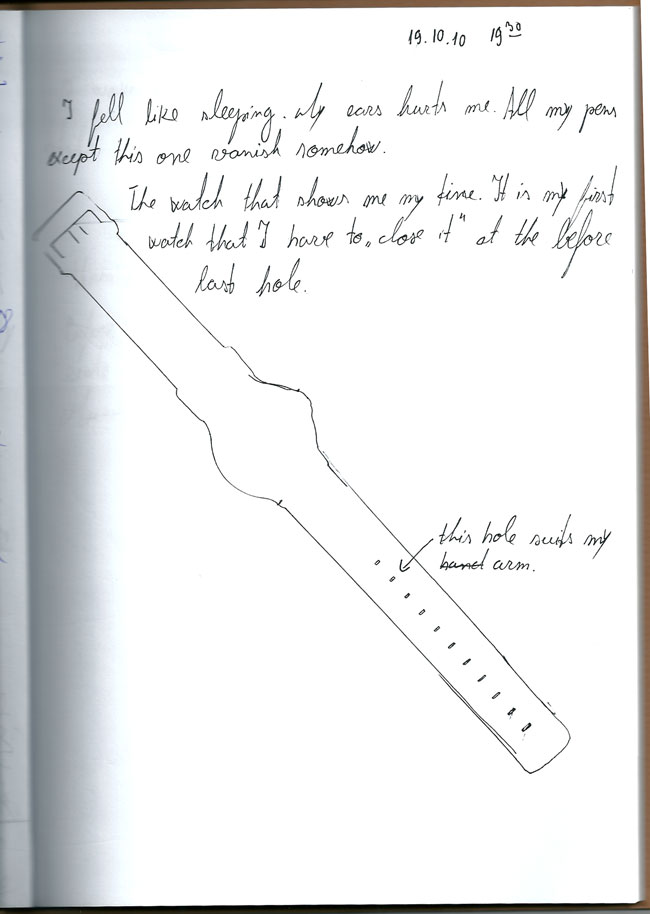 19.10.10 19³⁰
I fell like sleeping. My ears hurts me. All my pens
except this one vanish somehow.
The watch that shows me my time. It is my first
watch that I have to „close it" at the before
last hole.
this hole suits my
hand arm.